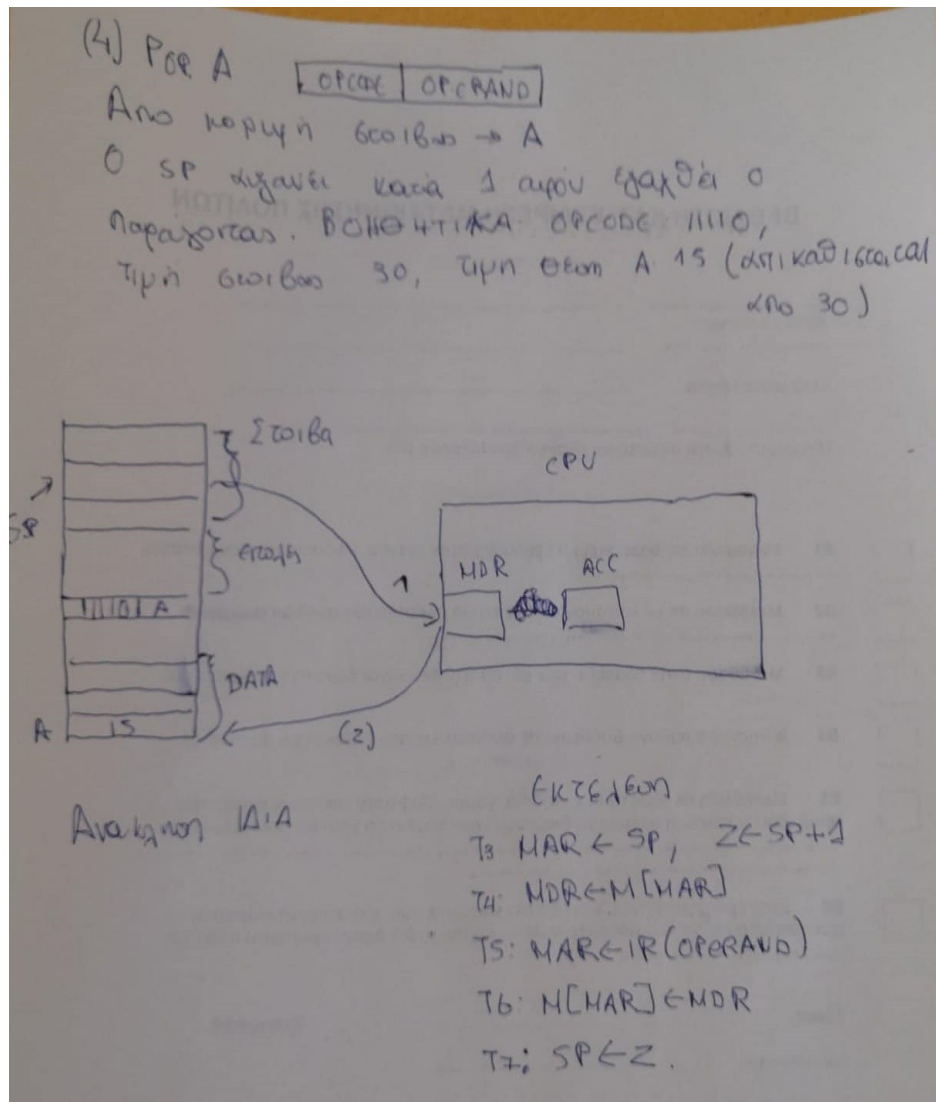 (4) POP A
OPCODE | OPERAND
Απο κορυφή στοιβας → A
Ο SP αυξανει κατά 1 αφού εξαχθεί ο
παραγοντας. ΒΟΗΘΗΤΙΚΑ OPCODE 11110,
Τιμή στοιβας 30, τιμή θεση A 15 (αντικαθισταται
απο 30)
Στοιβα
CPU
SP
εντολη
MDR ACC
1
A
DATA
A 15 (2)
Ανακληση ΙΔΙΑ
Εκτελεση
T3 MAR ← SP, Z ← SP+1
T4: MDR ← M[MAR]
T5: MAR ← IR(OPERAND)
T6: M[MAR] ← MDR
T7: SP ← Z.